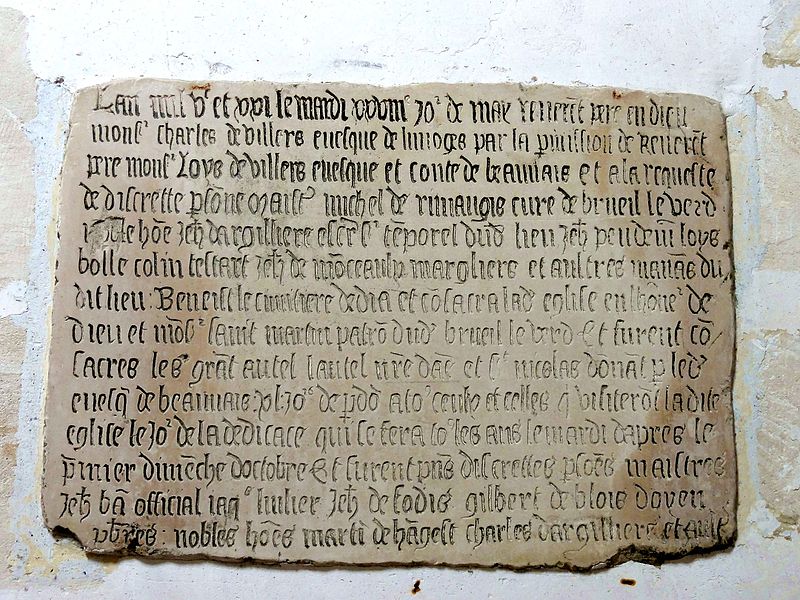 Lan mil vᶜ et xxvi le mardi xxviiiᵉ Joʳ de may reverēt pere en dieu
monsʳ charles de villers evesque de limoges par la pmission de Reverēt
pere monsʳ Loys de villers evesque et conte de beauvais et a la requeste
de discrette psōne maistʳ michel de rumaugis cure de brueil le verd
hōe Jeħ dargilliere escʳ sʳ tēporel dud lieu Jeħ peudevī loys
bolle colin testart Jeħ de mōceaulx margliers et aultres manās du
dit lieu: Beneist le cimitiere dedia et cōsacra lad eglise en lhōneʳ de
dieu et mōsʳ saint martin patrō dud brueil le verd Et furent cō
sacres les grāt autel lautel nrē dāe et sᵗ nicolas donāt p led
evesq de beauvais: xl: Joʳˢ de pdō a toʳ ceulx et celles q visiterōt la dite
eglise le Joʳ de la dedicace qui se fera toʳ les ans le mardi dapres le
pmier dimēche doctobre Et furent pns discrettes psōes maistres
Jeħ bā official iaqˢ lulier Jeħ de sodis gilbert de blois doyen
pbres: nobles hōes marti de hāgest charles dargilliers et ault